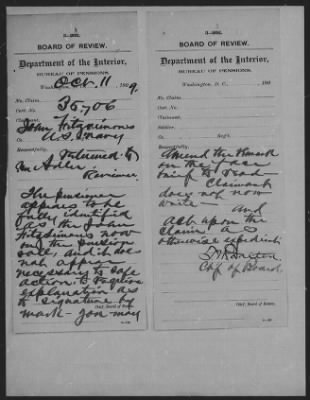 3-1892.
BOARD OF REVIEW.
Department of the Interior,
BUREAU OF PENSIONS,
Washington, D. C., Oct. 11, 1909.
No. Claim,
Cert. No. 35,706
Claimant,
John Fitzsimons
U.S. Navy
Returned to
Mr Adler
Reviewer.
The pensioner
appears to be
fully identified
as the John
Fitzsimons now
on the pension
roll, and it does
not appear
necessary to safe
action to require
explanation as
to signature by
mark - you may
Chief, Board of Review.
3-1892.
BOARD OF REVIEW.
Department of the Interior,
BUREAU OF PENSIONS,
Washington, D. C., 190
No. Claim,
Cert. No.
Claimant,
Soldier,
Co. Reg't
Amend the Remark
on the face
brief to read -
Claimant
does not now
write - and
act upon the
claim as
otherwise expedient.
Chf of Board
Chief, Board of Review.